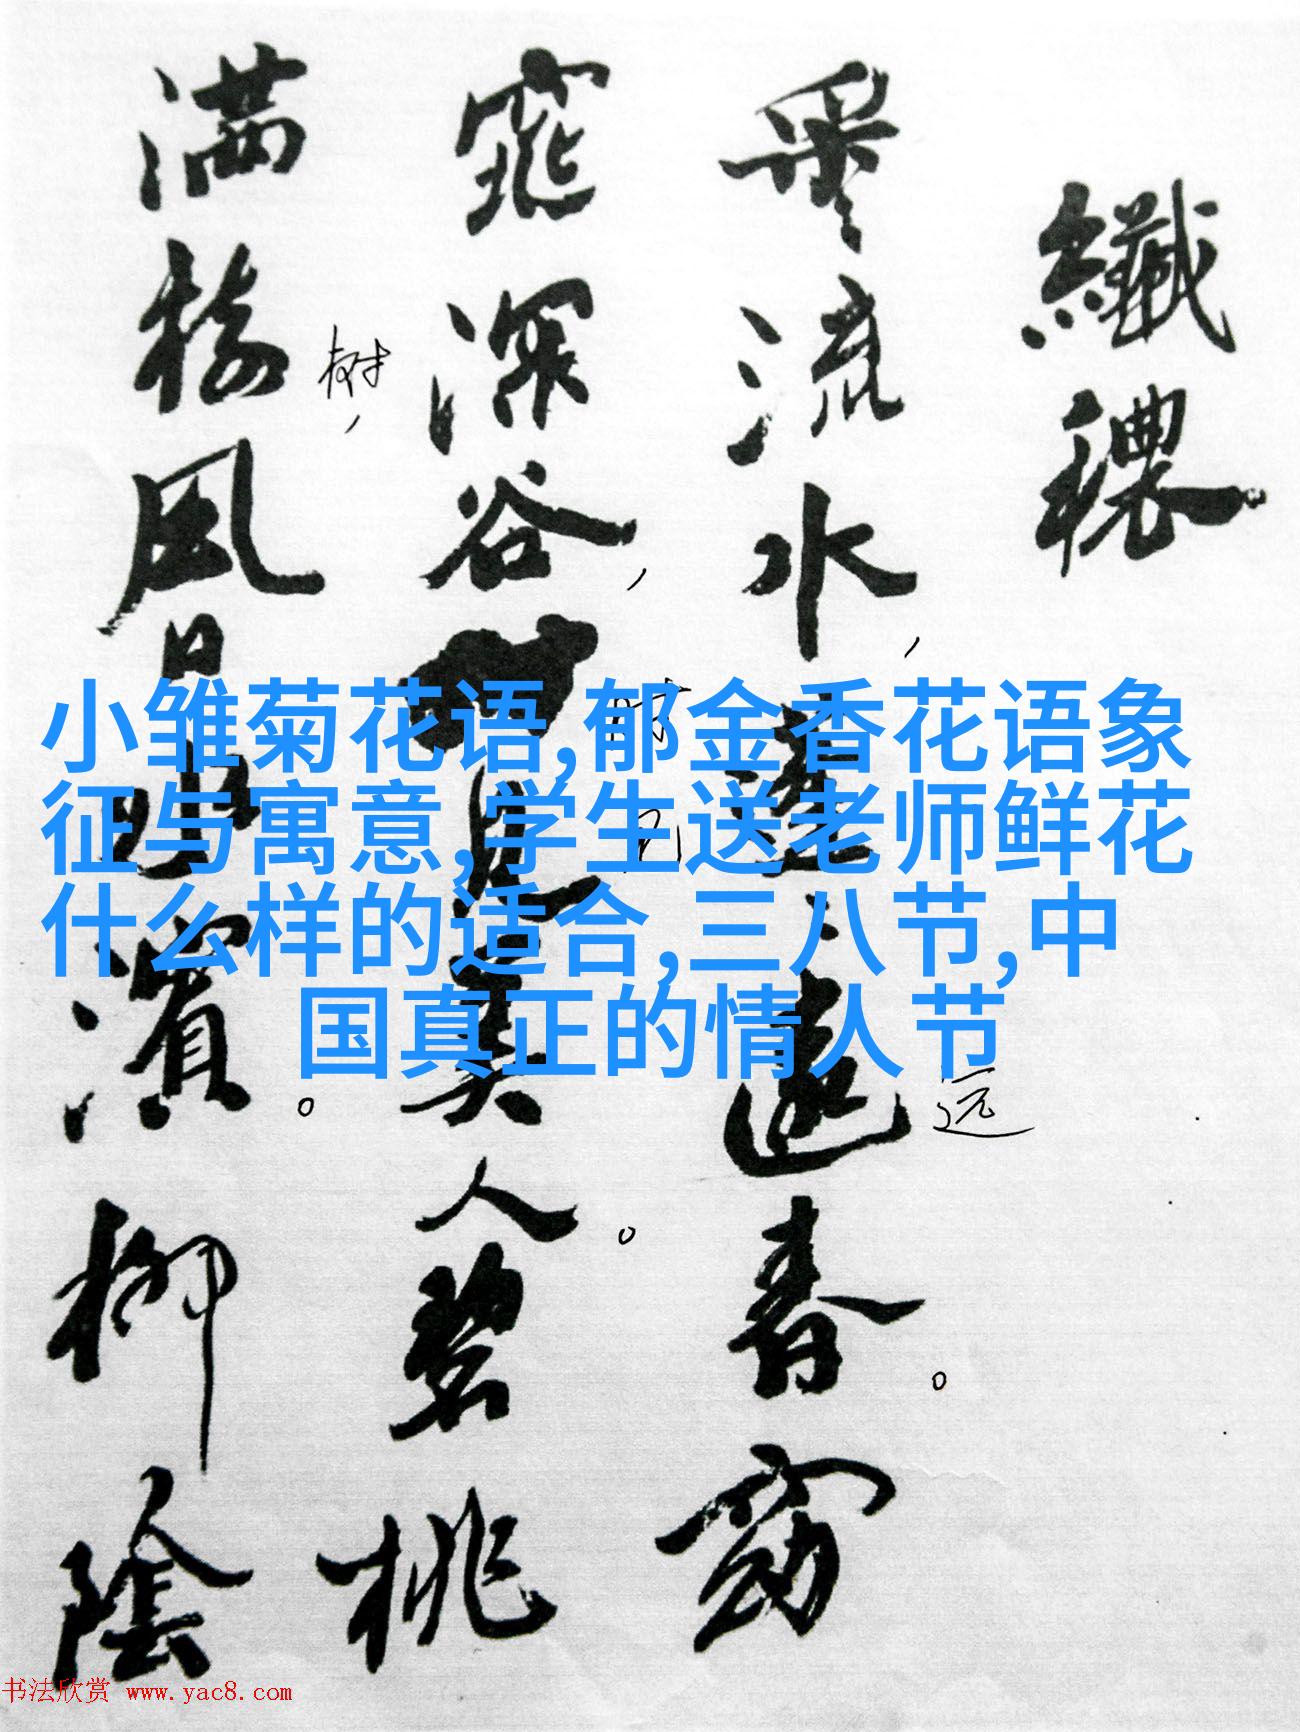 纖穠
采流水,蓬、遠春。窈
远
窕深谷,見美人。碧桃
满樹,風日水濱。柳陰
树
小雏菊花语,郁金香花语象
征与寓意,学生送老师鲜花
什么样的适合,三八节,中
国真正的情人节
书法欣赏 www.yac8.com